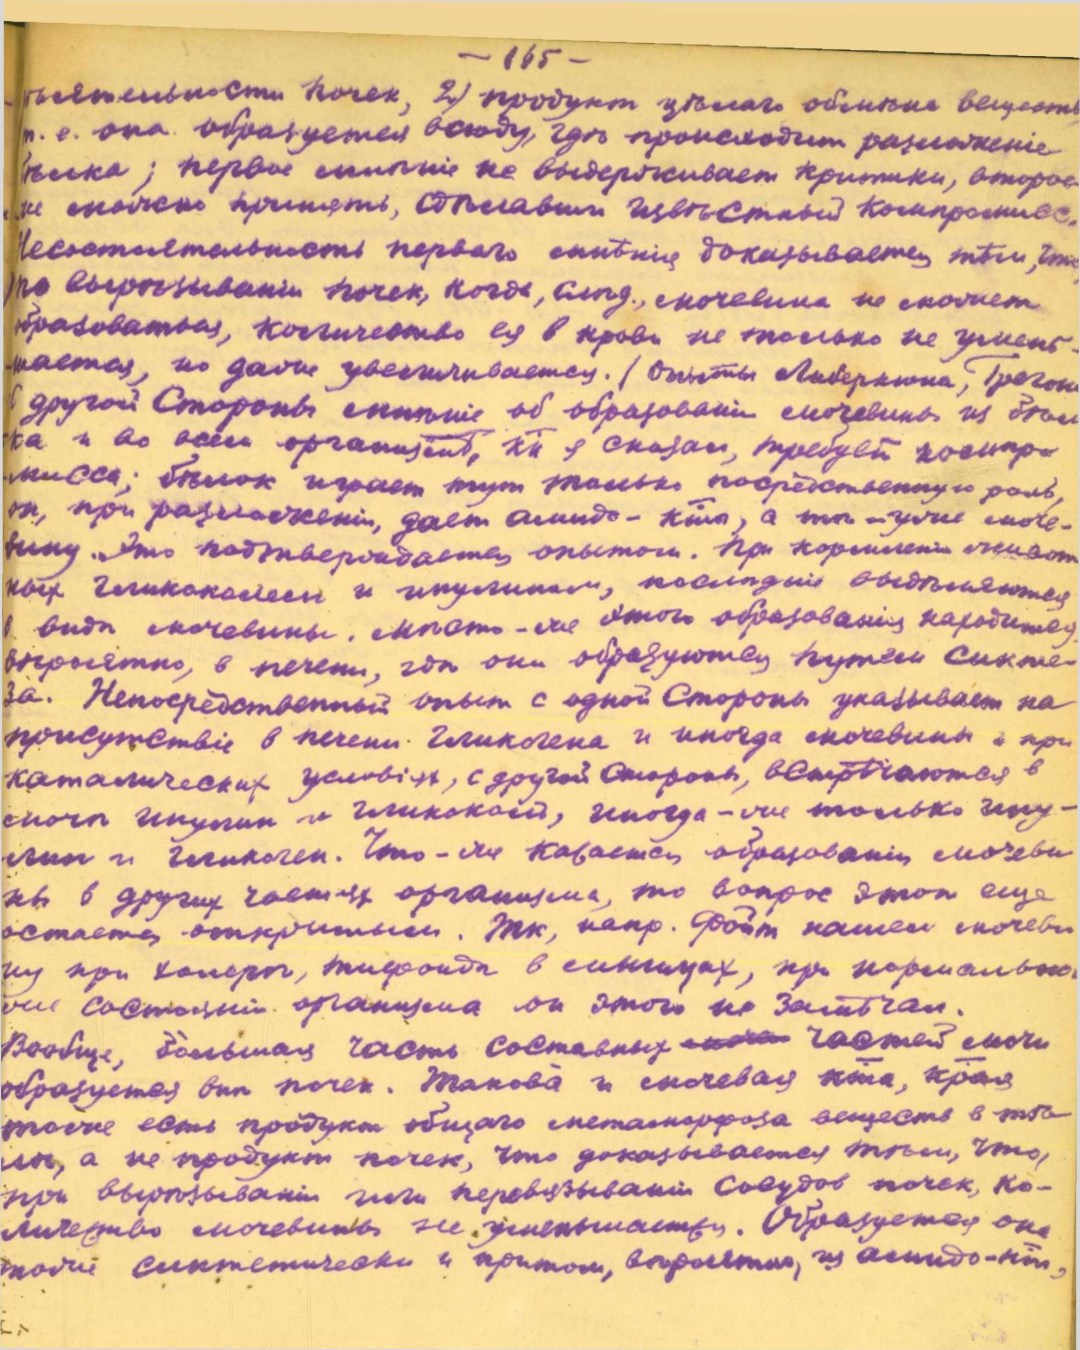 — 165 —
дѣятельности почек, 2) продукт цѣлаго обмѣна веществ,
т. е. она образуется всюду, гдѣ происходит разложеніе
бѣлка; первое мнѣніе не выдерживает критики, второе
же можно принять, сдѣлавши извѣстный компромисс.
Несостоятельность перваго мнѣнія доказывается тѣм, что,
по вырѣзываніи почек, когда, слѣд., мочевина не может
образоваться, количество ея в крови не только не умень-
шается, но даже увеличивается. (Опыты Либеркюна,
С другой стороны мнѣніе об образованіи мочевины из бѣл
ка и во всем организмѣ, кк я сказал, требует компро
мисса; бѣлок играет тут только посредственную роль,
он, при разложеніи, дает амидо-кты, а тѣ – уже моче-
вину. Это подтверждается опытом. При кормленіи живот
ных гликоколем и, послѣдніе выдѣляются
в видѣ мочевины. Мѣсто-же этого образованія находится,
вѣроятно, в печени, гдѣ они образуются путем синте-
за. Непосредственный опыт с одной стороны указывает на
присутствіе в печени гликогена и иногда мочевины и при
условіях, с другой стороны, встрѣчаются в
мочѣ инулин и гликоколь, иногда-же только ину-
лин и гликоген. Что-же касается образованія мочеви
ны в других частях организма, то вопрос этот еще
остается открытым. Тк, напр. Фойт нашел мочеви
ну при холерѣ, тифоидѣ в мышцах, при нормально
же состояніи организма он этого не замѣчал.
Вообще, большая часть составных частей мочи
образуется внѣ почек. Такова и мочевая кта, края
тоже есть продукт общаго метаморфоза веществ в тѣ
лѣ, а не продукт почек, что доказывается тѣм, что,
при вырѣзываніи или перевязываніи сосудов почек, ко-
личество мочевины не уменьшается. Образуется она
тоже синтетически и притом, вѣроятно, из амидо-кт,